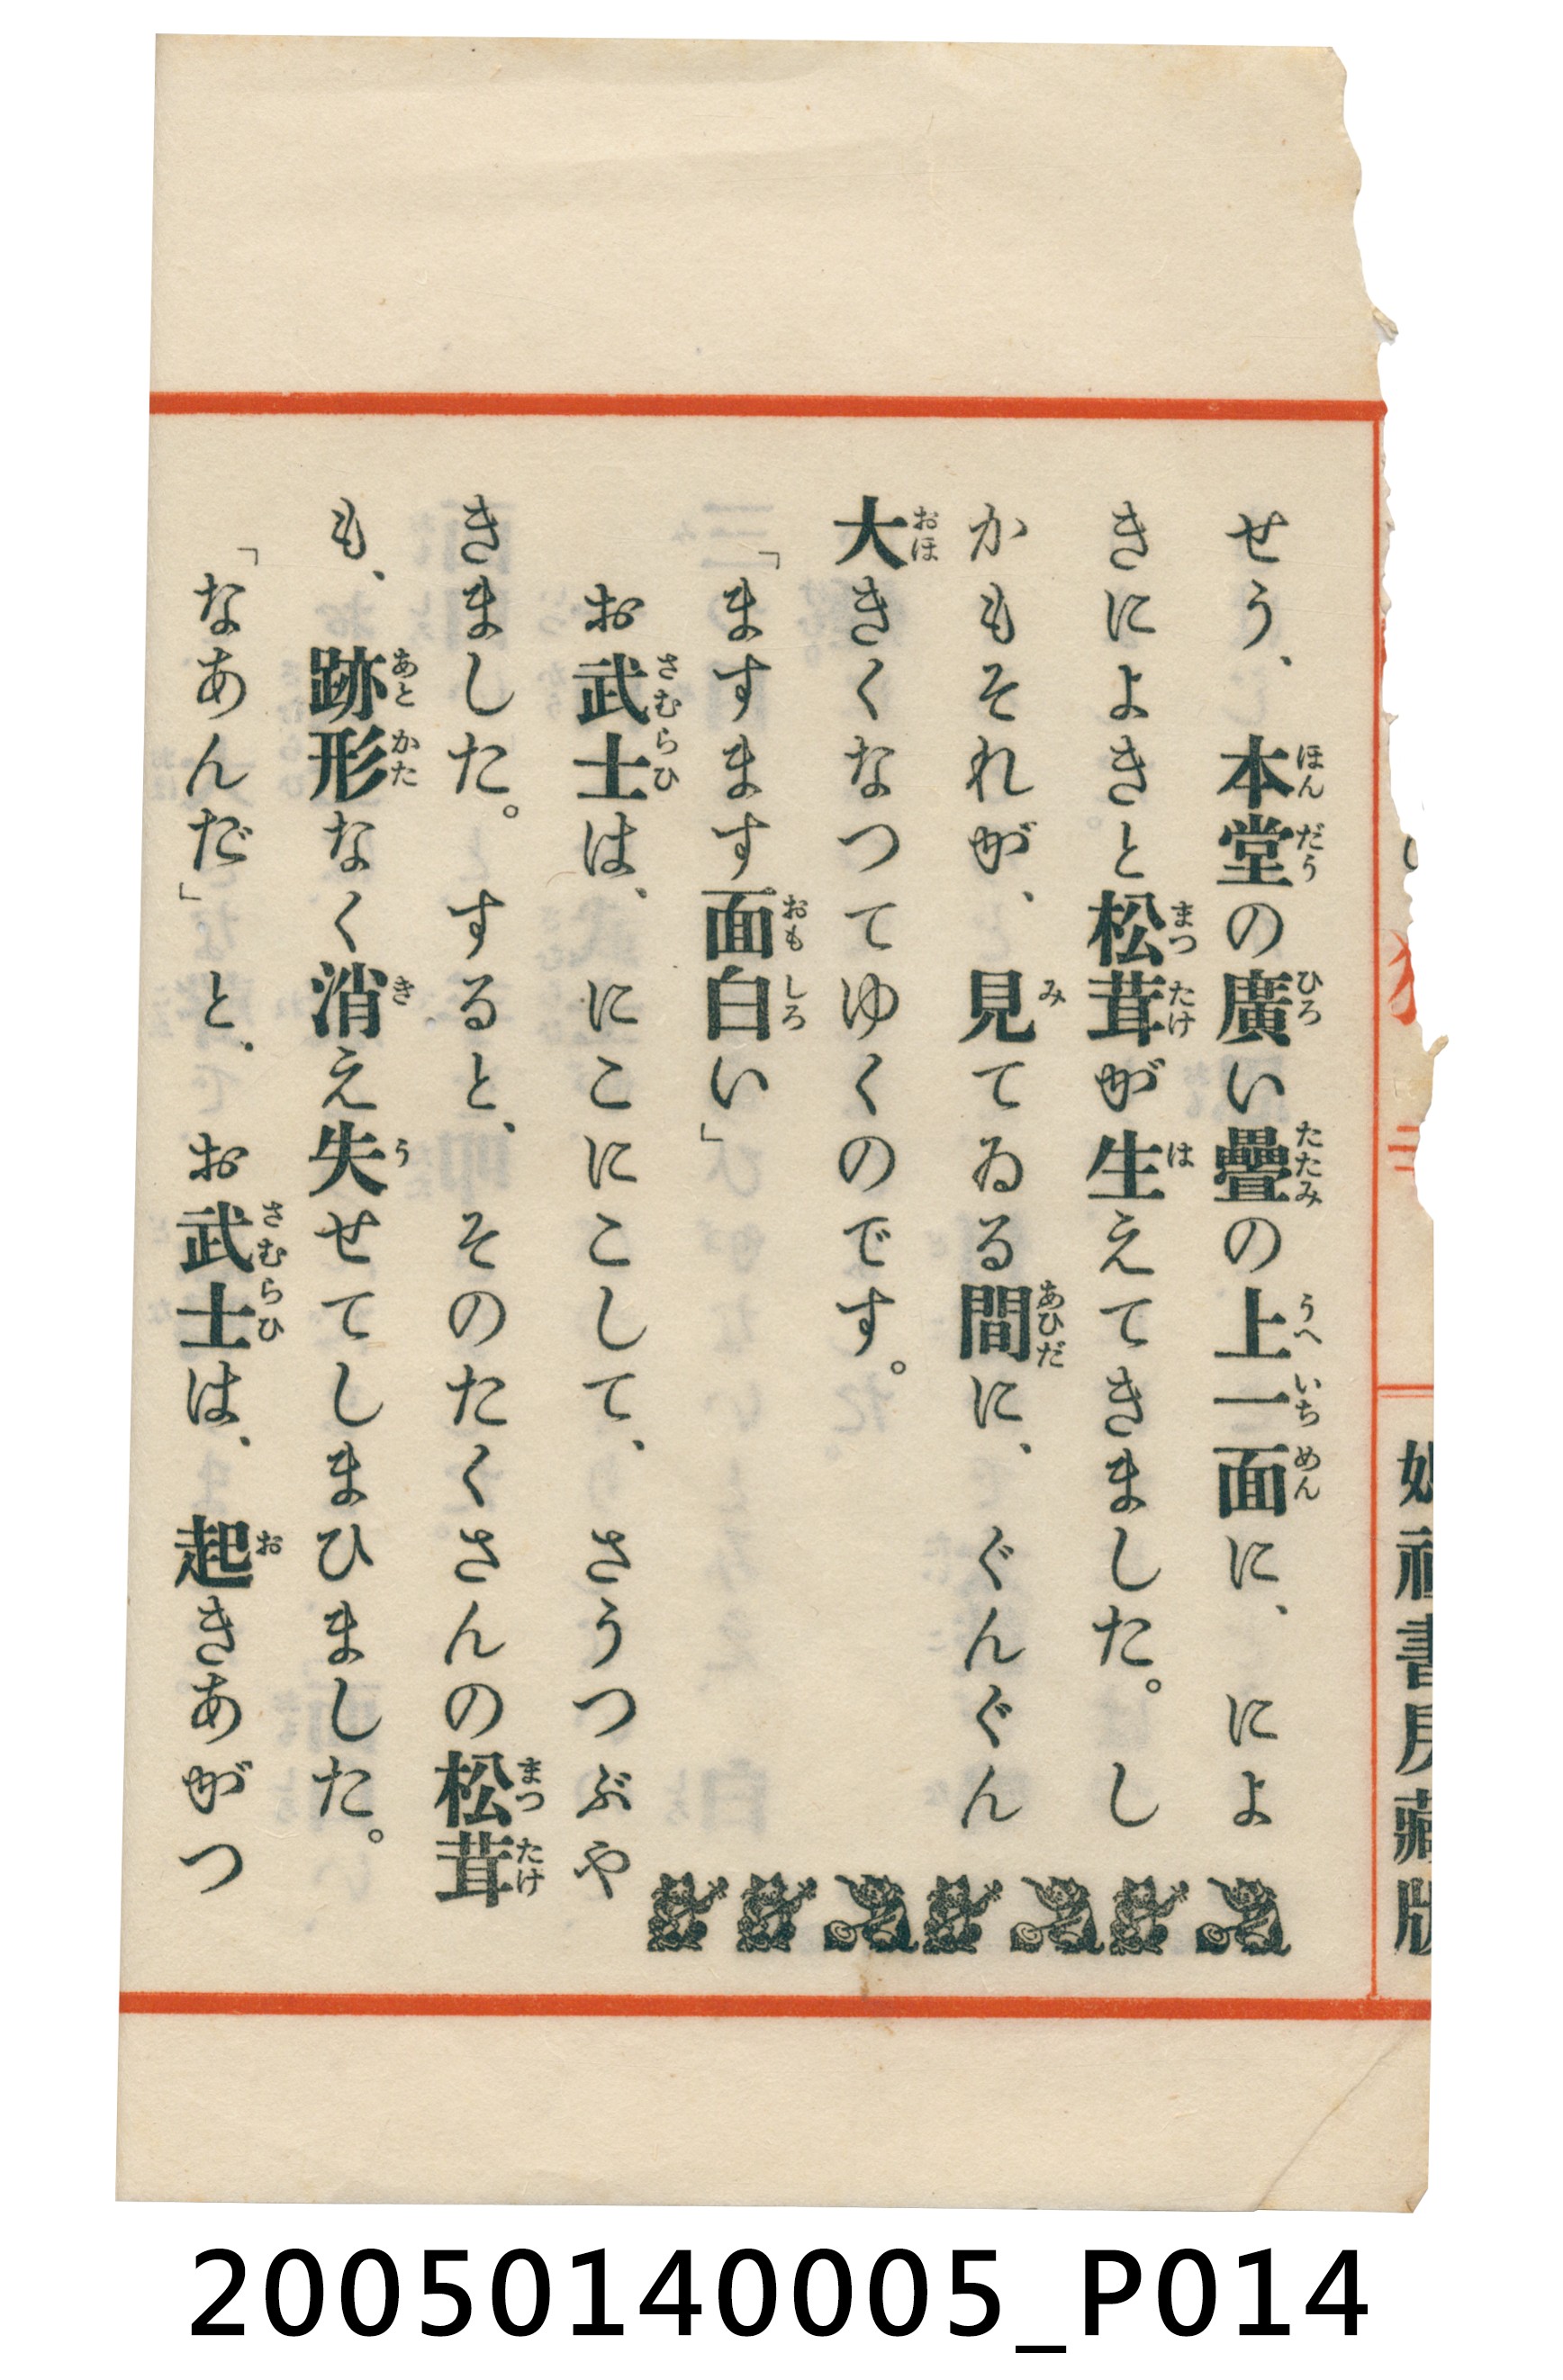 せう、本堂の廣い疊の上一面に、によ
きによきと松茸が生えてきました。し
かもそれが、見てゐる間に、ぐんぐん
大きくなつてゆくのです。
「ますます面白い」
お武士は、にこにこして、さうつぶや
きました。すると、そのたくさんの松茸
も、跡形なく消え失せてしまひました。
「なあんだ」と、お武士は、起きあがつ
書房藏版
20050140005_P014